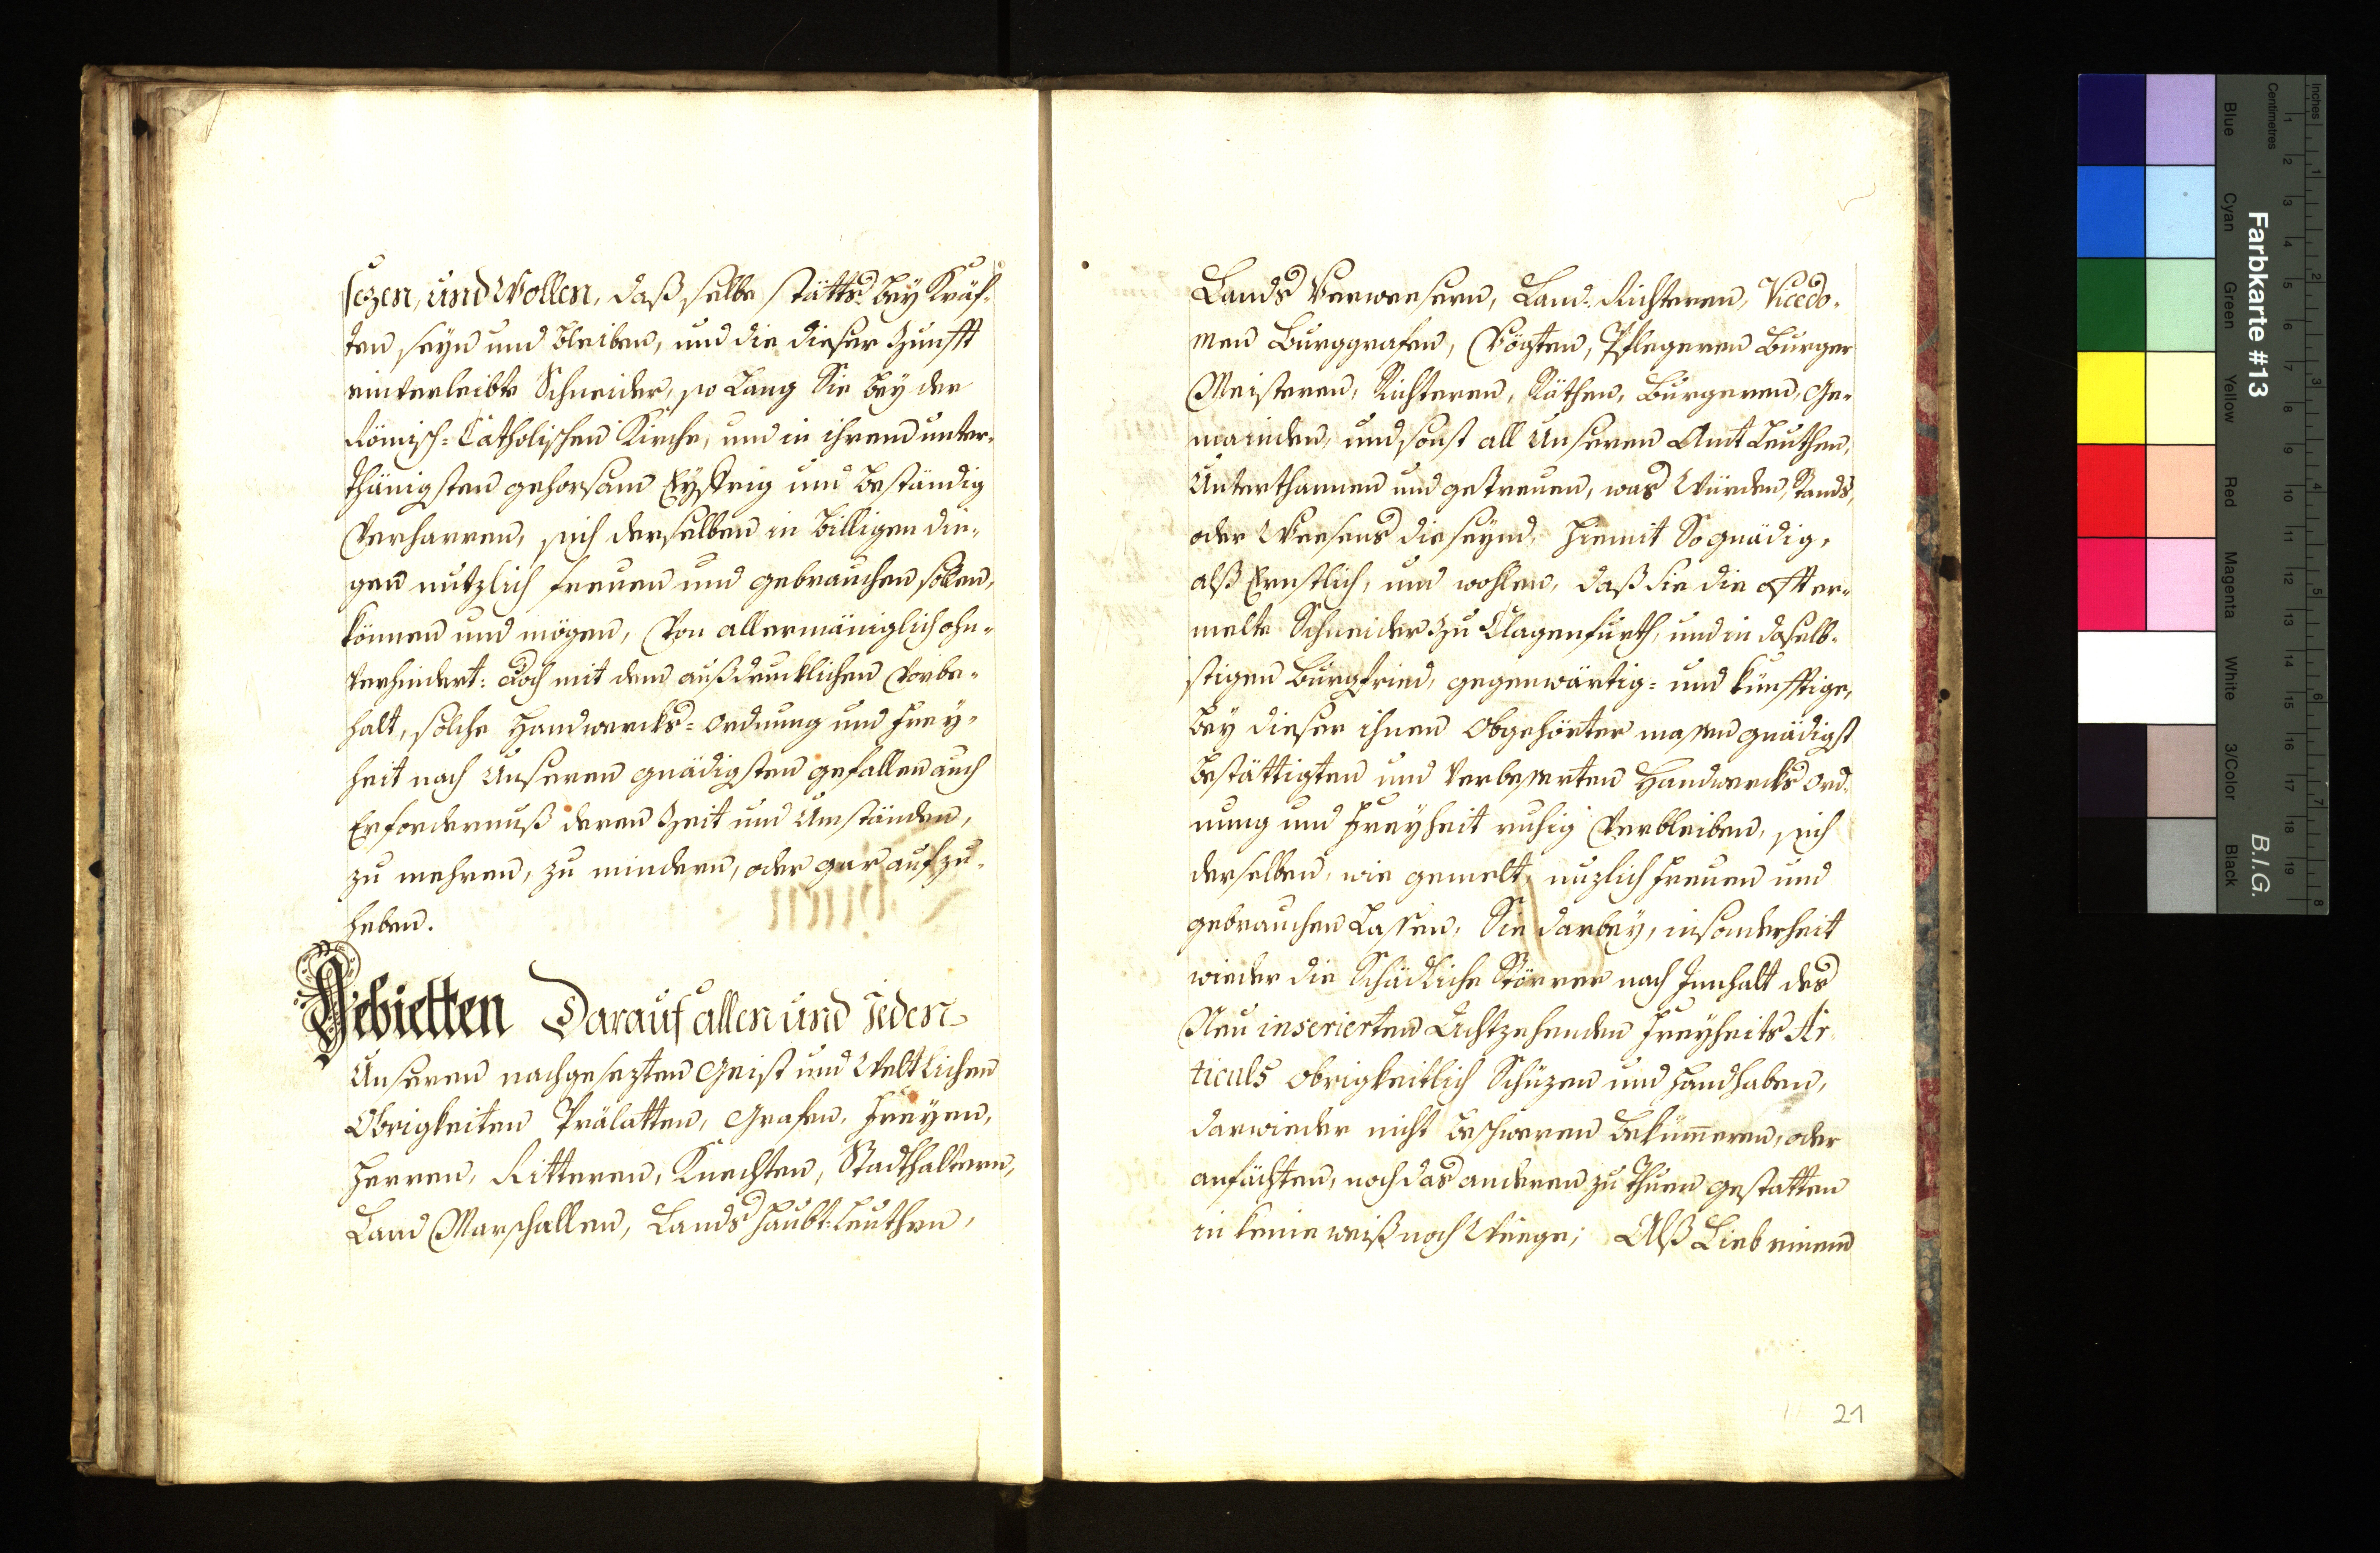 sezen, und Wollen, daß selbe stätts bey Kräf-
ten seyn und bleiben, und die dieser Zunfft
einverleibte Schneider, so Lang Sie bey der
Römisch-Catholischen Kirche, und in ihrem unter-
thänigsten gehorsam Eyffrig und beständig
Verharren, sich derselben in billigen din-
gen nutzlich freuen und gebrauchen sollen,
können und mögen, Von allermäniglich ohn-
verhindert: doch mit dem außdrucklichen Vorbe-
halt, solche Handwercks-ordnung und Frey-
heit nach Unseren gnädigsten gefallen auch
Erfordernuß deren Zeit und Umständen,
zu mehren, zu mindern, oder gar aufzu-
heben.
Gebietten Darauf allen und Jeden
Unseren nachgesezten Geist und Weltlichen
Obrigkeiten Prälatten, Grafen, Freyen,
Herren, Ritteren, Knechten, Stadthaltern,
Land Marschallen, Lands Haubt-Leuthen,
Lands Verwesern, Land-Richteren, Vicedo-
men Burggrafen, Vögten, Pflegeren Burger
Meisteren, Richteren, Räthen, Burgeren, Ge-
mainden, und sonst all Unseren Amt Leuthen,
Unterthannen und getreuen, was Würden, Stands,
oder Weesens die seynd, hiemit So gnädig,
alß Ernstlich, und wohlen, daß Sie die offter-
melte Schneider zu Clagenfurth, und in daselb-
stigen Burgfried, gegenwärtig- und künfftige,
bey dieser ihnen Obgehörter massen gnädigst
bestättigten und Verbesserten Handwercks Ord-
nung und Freyheit ruhig Verbleiben, sich
derselben, wie gemelt, nuzlich freuen und
gebrauchen Lassen, Sie darbey, insonderheit
wieder die Schädliche Störrer nach Innhalt des
Neu inserierten Achtzehenden Freyheits Ar-
ticuls obrigkeitlich Schüzen und handhaben,
darwieder nicht beschweren bekümeren, oder
anfächten, noch das anderen zu Thuen gestatten
in keine weiß noch Weege; Alß Lieb einem
21
Farbkarte #13
B.I.G.
Inches
Centimetres
1 2 3 4 5 6 7 8
1 2 3 4 5 6 7 8 9 10 11 12 13 14 15 16 17 18 19
Blue
Cyan
Green
Yellow
Red
Magenta
White
3/Color
Black